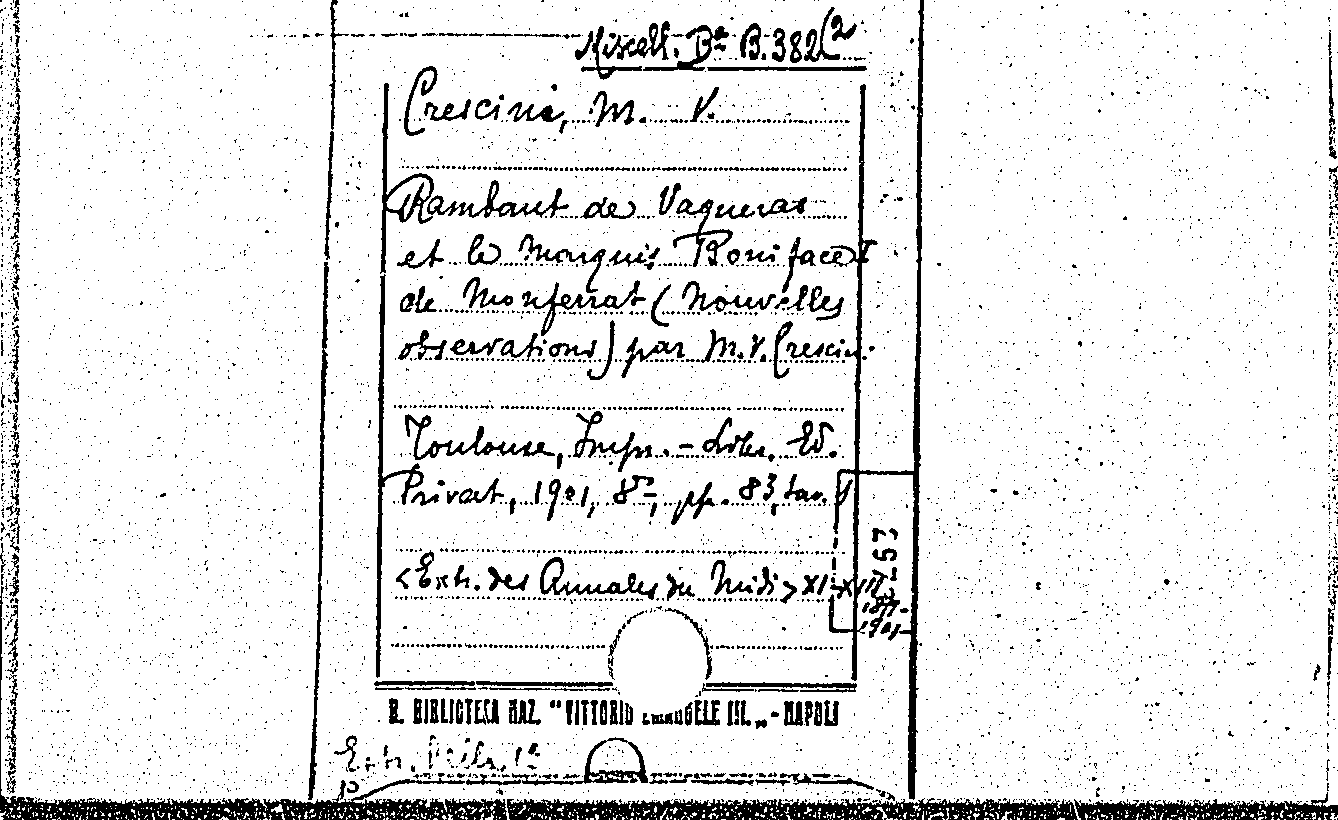 Miscell. Bª B. 382(2
Crescini, M. V.
Rambaut de Vaqueras
et le Marquis Boniface I
de Monferrat (Nouvelles
observations) par M. V. Crescini
Toulouse, Impr. - Libr. Ed.
Privat, 1901, 8º, pp. 83, tav. 1
<Extr. des Annales du Midi> XI-XIII
1899-
1901
57
R. BIBLIOTECA NAZ. "VITTORIO EMANUELE III„ - NAPOLI
Extr.